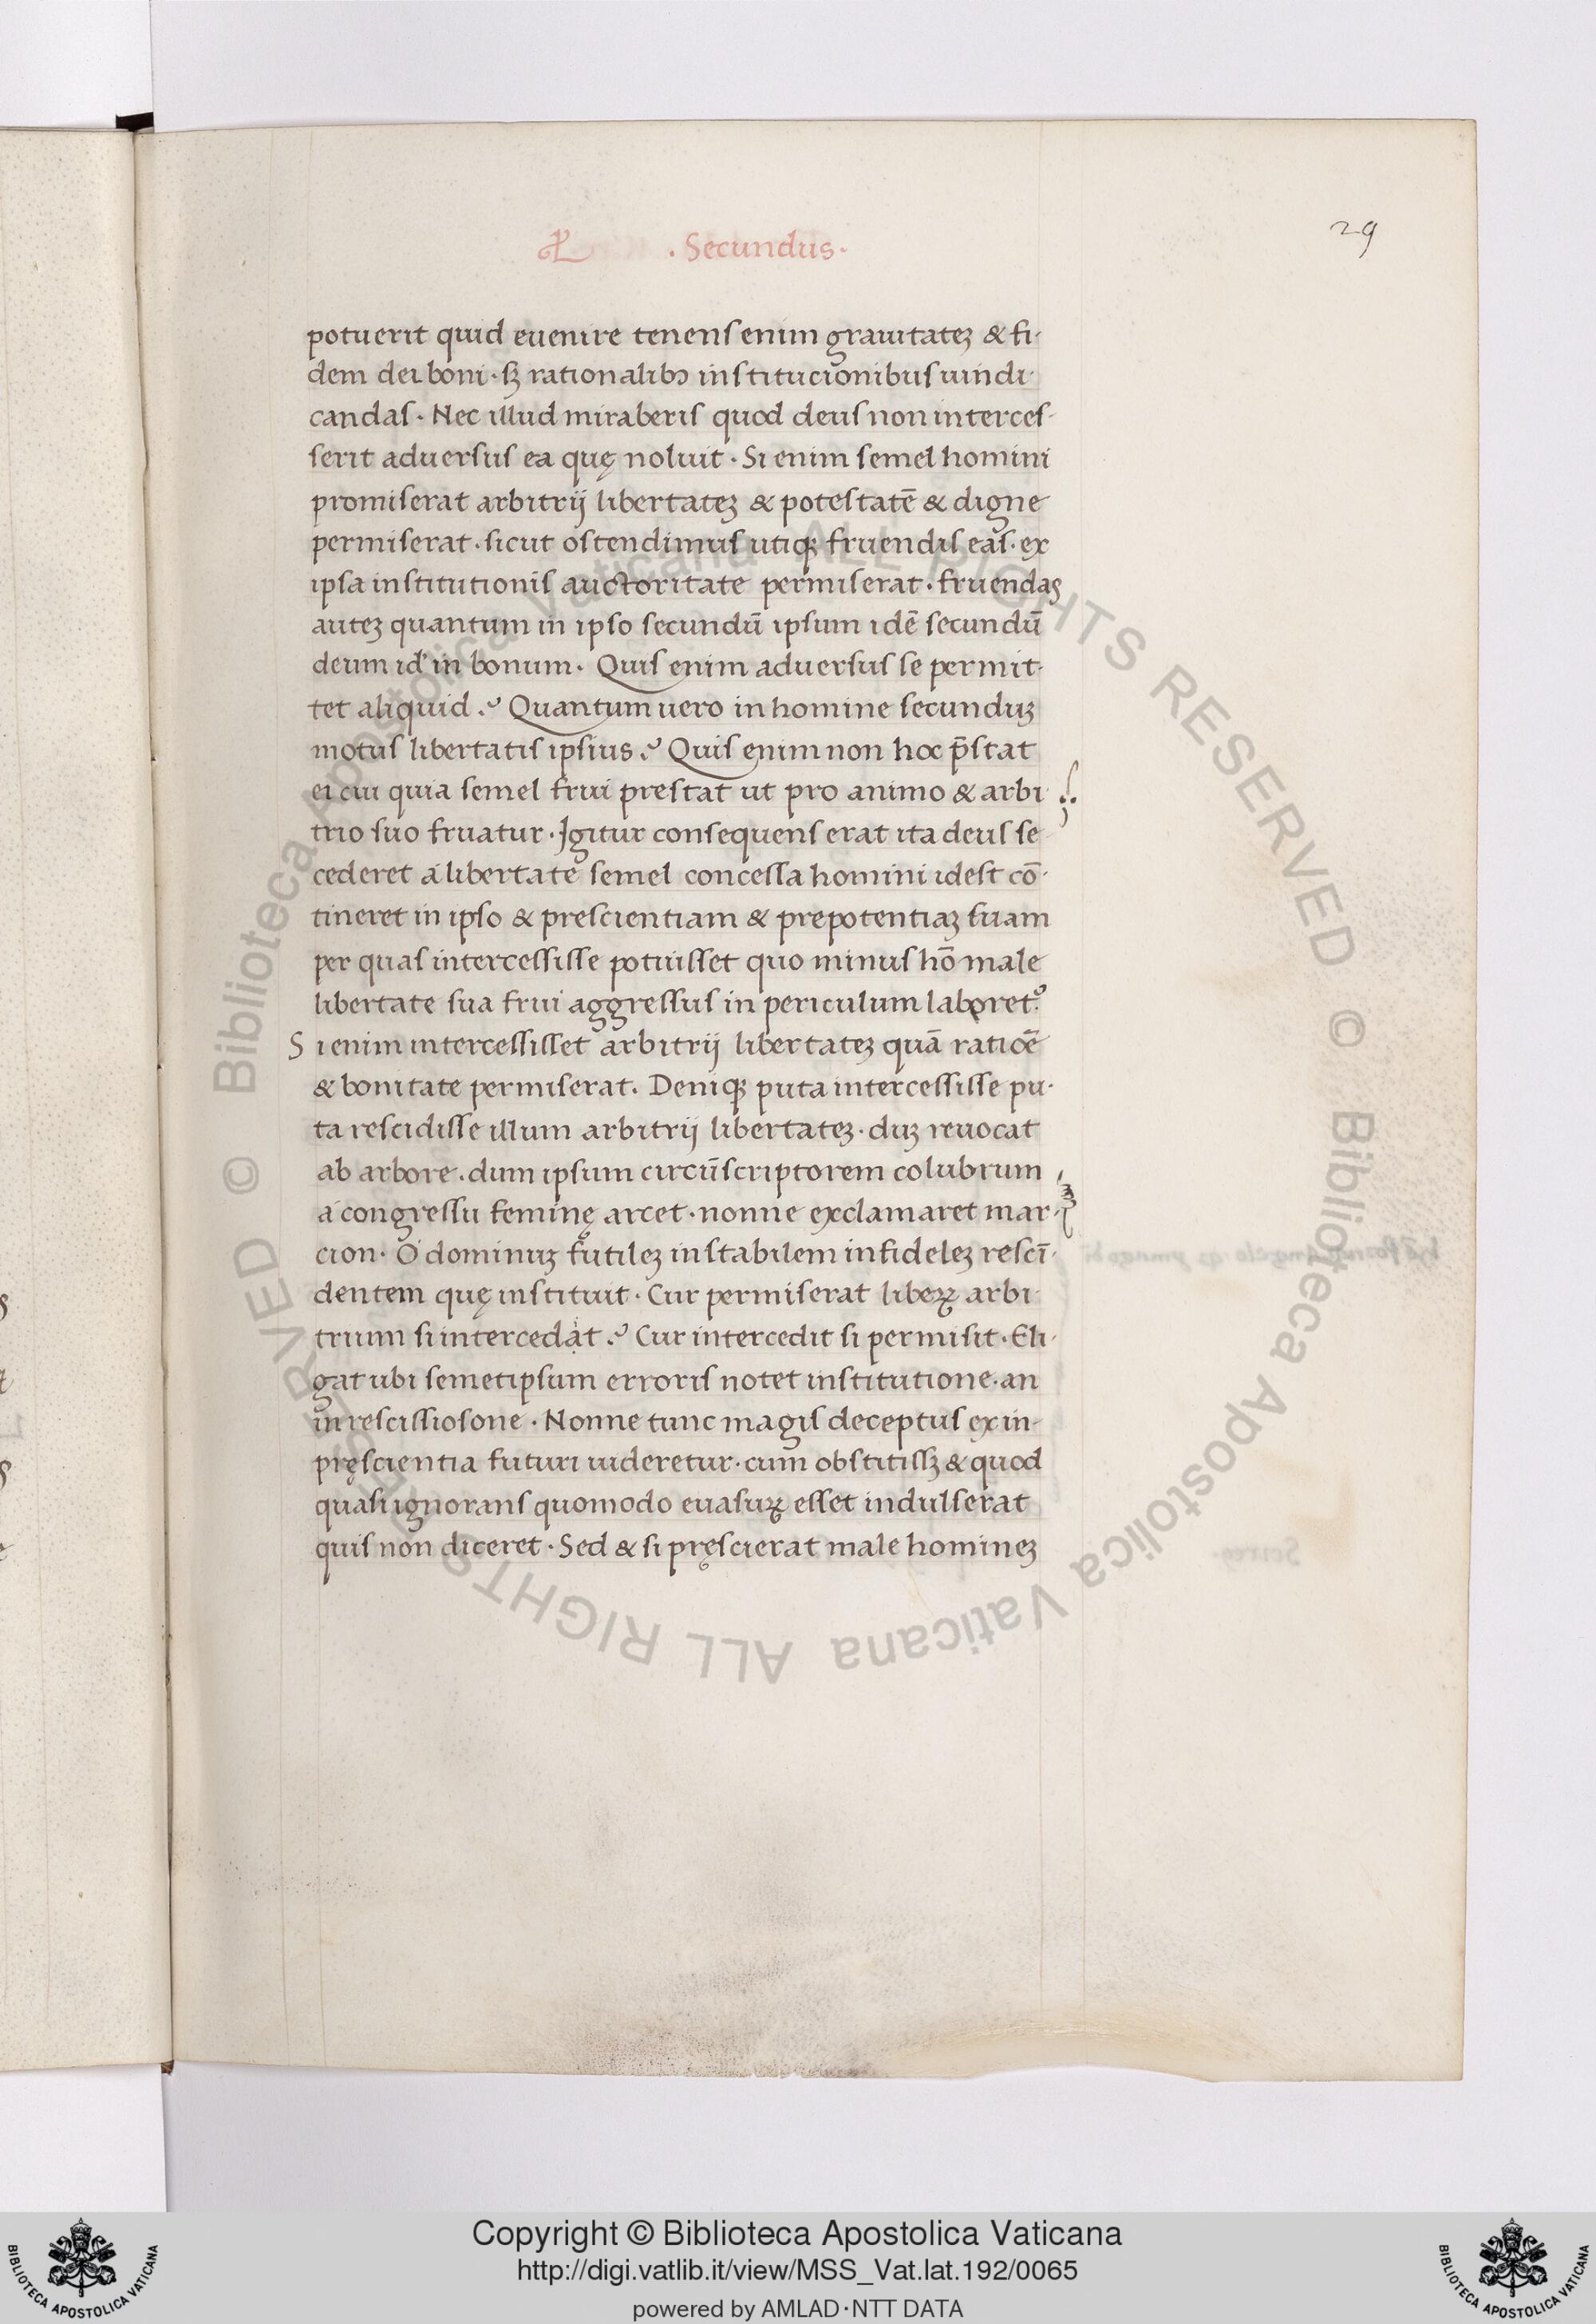 29
. Secundus.
potuerit quid euenire tenens enim grauitateꝫ & fi-
dem dei boni · sꝫ rationalibꝯ institucionibus uindi-
candas · Nec illud miraberis quod deus non interces-
serit aduersus ea quę noluit · Si enim semel homini
promiserat arbitrij libertateꝫ & potestatē & digne
permiserat · sicut ostendimus utiqꝫ fruendis eas · ex
ipsa institutionis auctoritate permiserat · fruendas
auteꝫ quantum in ipso secundū ipsum idē secundū
deum id in bonum · Quis enim aduersus se permit-
tet aliquid ? Quantum uero in homine secunduꝫ
motus libertatis ipsius ? Quis enim non hoc p̄stat
ei cui quia semel frui prestat ut pro animo & arbi-
trio suo fruatur · Igitur consequens erat ita deus se-
cederet á libertate semel concessa homini idest cō-
tineret in ipso & prescientiam & prepotentiaꝫ suam
per quas intercessisse potuisset quo minus hō male
libertate sua frui aggressus in periculum laboret?
Si enim intercessisset arbitrij libertateꝫ quā ratiōe
& bonitate permiserat. Deniqꝫ puta intercessisse pu-
ta rescidisse illum arbitrij libertateꝫ · duꝫ reuocat
ab arbore · dum ipsum circūscriptorem colubrum
á congressu feminę arcet · nonne exclamaret mar-
cion · O dominuꝫ futileꝫ instabilem infideleꝫ rescī-
dentem quę instituit · Cur permiserat libeꝝ arbi-
trium si intercedat ? Cur intercedit si permisit · Eli-
gat ubi semetipsum erroris notet institutione · an
in rescissiosone · Nonne tunc magis deceptus ex in-
pręscientia futuri uideretur · cum obstitissꝫ & quod
quasi ignorans quomodo euasuꝝ esset indulserat
quis non diceret · Sed & si pręscierat male homineꝫ
© Biblioteca Apostolica Vaticana ALL RIGHTS RESERVED © Biblioteca Apostolica Vaticana ALL RIGHTS RESERVED
Copyright © Biblioteca Apostolica Vaticana
http://digi.vatlib.it/view/MSS_Vat.lat.192/0065
powered by AMLAD·NTT DATA
BIBLIOTECA APOSTOLICA VATICANA
BIBLIOTECA APOSTOLICA VATICANA